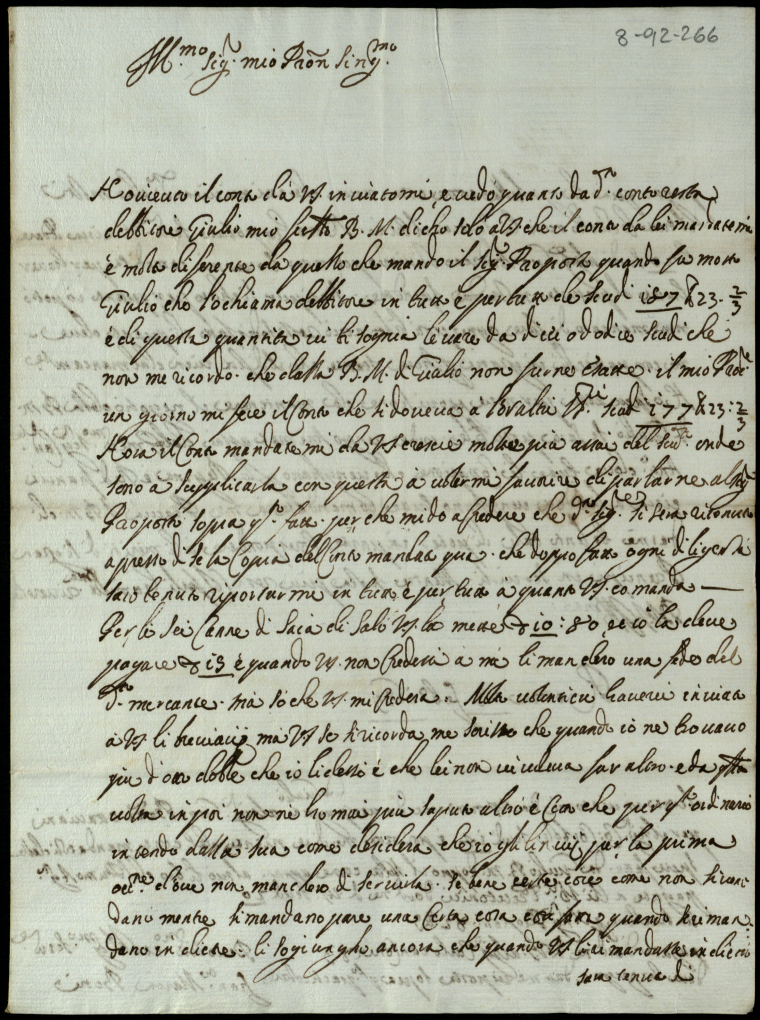 8-92-266
Ill.mo Sig.r mio Pron Sing.mo
Ho ricevuto il conto da VS. inviatomi, e vedo quanto da d.o conto resta
debbitore Giulio mio fratello B. M. dicho solo a VS che il conto da lei mandatomi
è molto diferente da quello che mando il Sig.r Proposto quando fu morto
Giulio che lo chiama debbitore in tutto è per tutto de scudi 187 23. 2/3
è di questa quantita vi bisognia levare da dieci o dodici scudi che
non mi ricordo. che dalla B. M. di Giulio non furno
un giorno mi fece il Conto che si doveva à scudi 177 23: 2/3
Hora il Conto mandatomi da VS cresce molto più assai del onde
sono a supplicarla con questa à volermi favorire di parlarne al Sig.r
Proposto sopra q.to fatto perche mi do a credere che d.o Sig.re si sera ritenuto
appresso di se la Copia del Conto mandato qua. che doppo fatto ogni diligenza
saro tenuto riportarmi in tutto è per tutto à quanto VS comanda
Per le sei Canne di Saia di Salò VS la mette 10:80 se io la deve
pagare 13 è quando VS. non Credessi à me li manderò una fede del
d.o mercante. ma so che VS. mi Credera. Molto volontieri haverei inviato
à VS li breviarij ma VS se si ricorda me scrisse che quando io ne trovavo
più d'otto doble che io li dessi è che lei non voleva far altro. e da quella
volta in poi non ne ho mai più saputo altro è Ora che per q.to ordinario
intendo dalla sua come desidera che io gli invij per la prima
occ.ne dove non mancherò di servirla. se bene certe cose come non si
dano mentre si mandano pare una Certa cosa quando si riman=
dano in dietro: li sogiungho ancora che quando VS li rimandasse in dietro
sara tenuta di